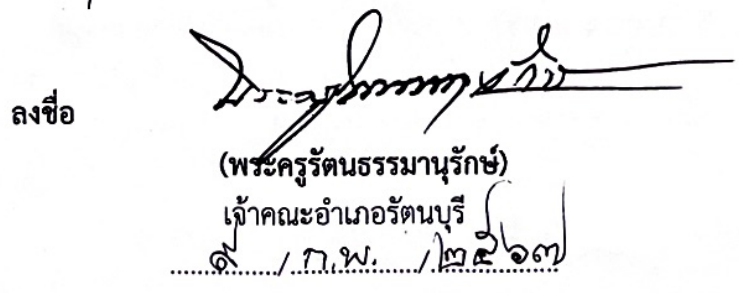 ลงชื่อ
(พระครูรัตนธรรมานุรักษ์)
เจ้าคณะอำเภอรัตนบุรี
๙ / ก.พ. / ๒๕๖๗